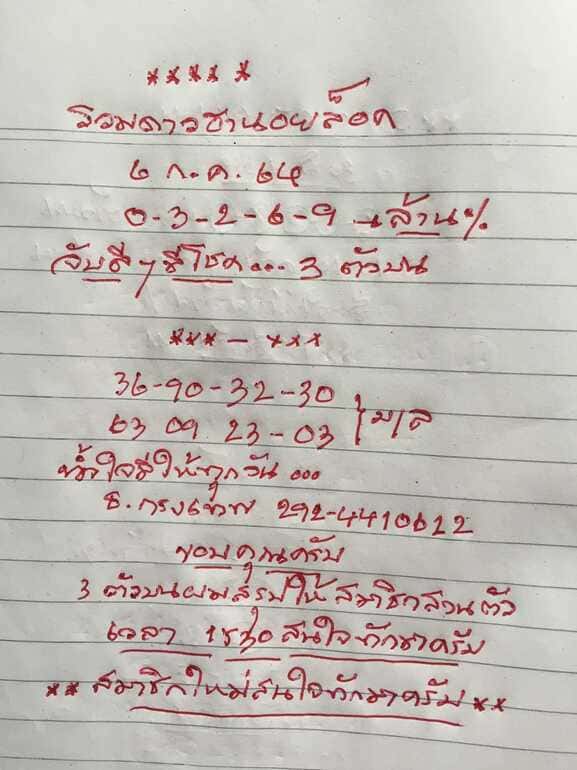 *****
รวมดาวฮานอยล็อค
6 ก.ค. 64
0-3-2-6-9 → ล้าน%
จับดีๆ มีโชค... 3 ตัวบน
*** - ***
36-90-32-30
63 09 23-03 } บ/ล
น้ำใจมีให้ทุกวัน ...
ธ. กรุงเทพ 292-4410622
ขอบคุณครับ
3 ตัวบนผมสรุปให้สมาชิกส่วนตัว
เวลา 1530 สนใจทักมาครับ
** สมาชิกใหม่สนใจทักมาครับ **